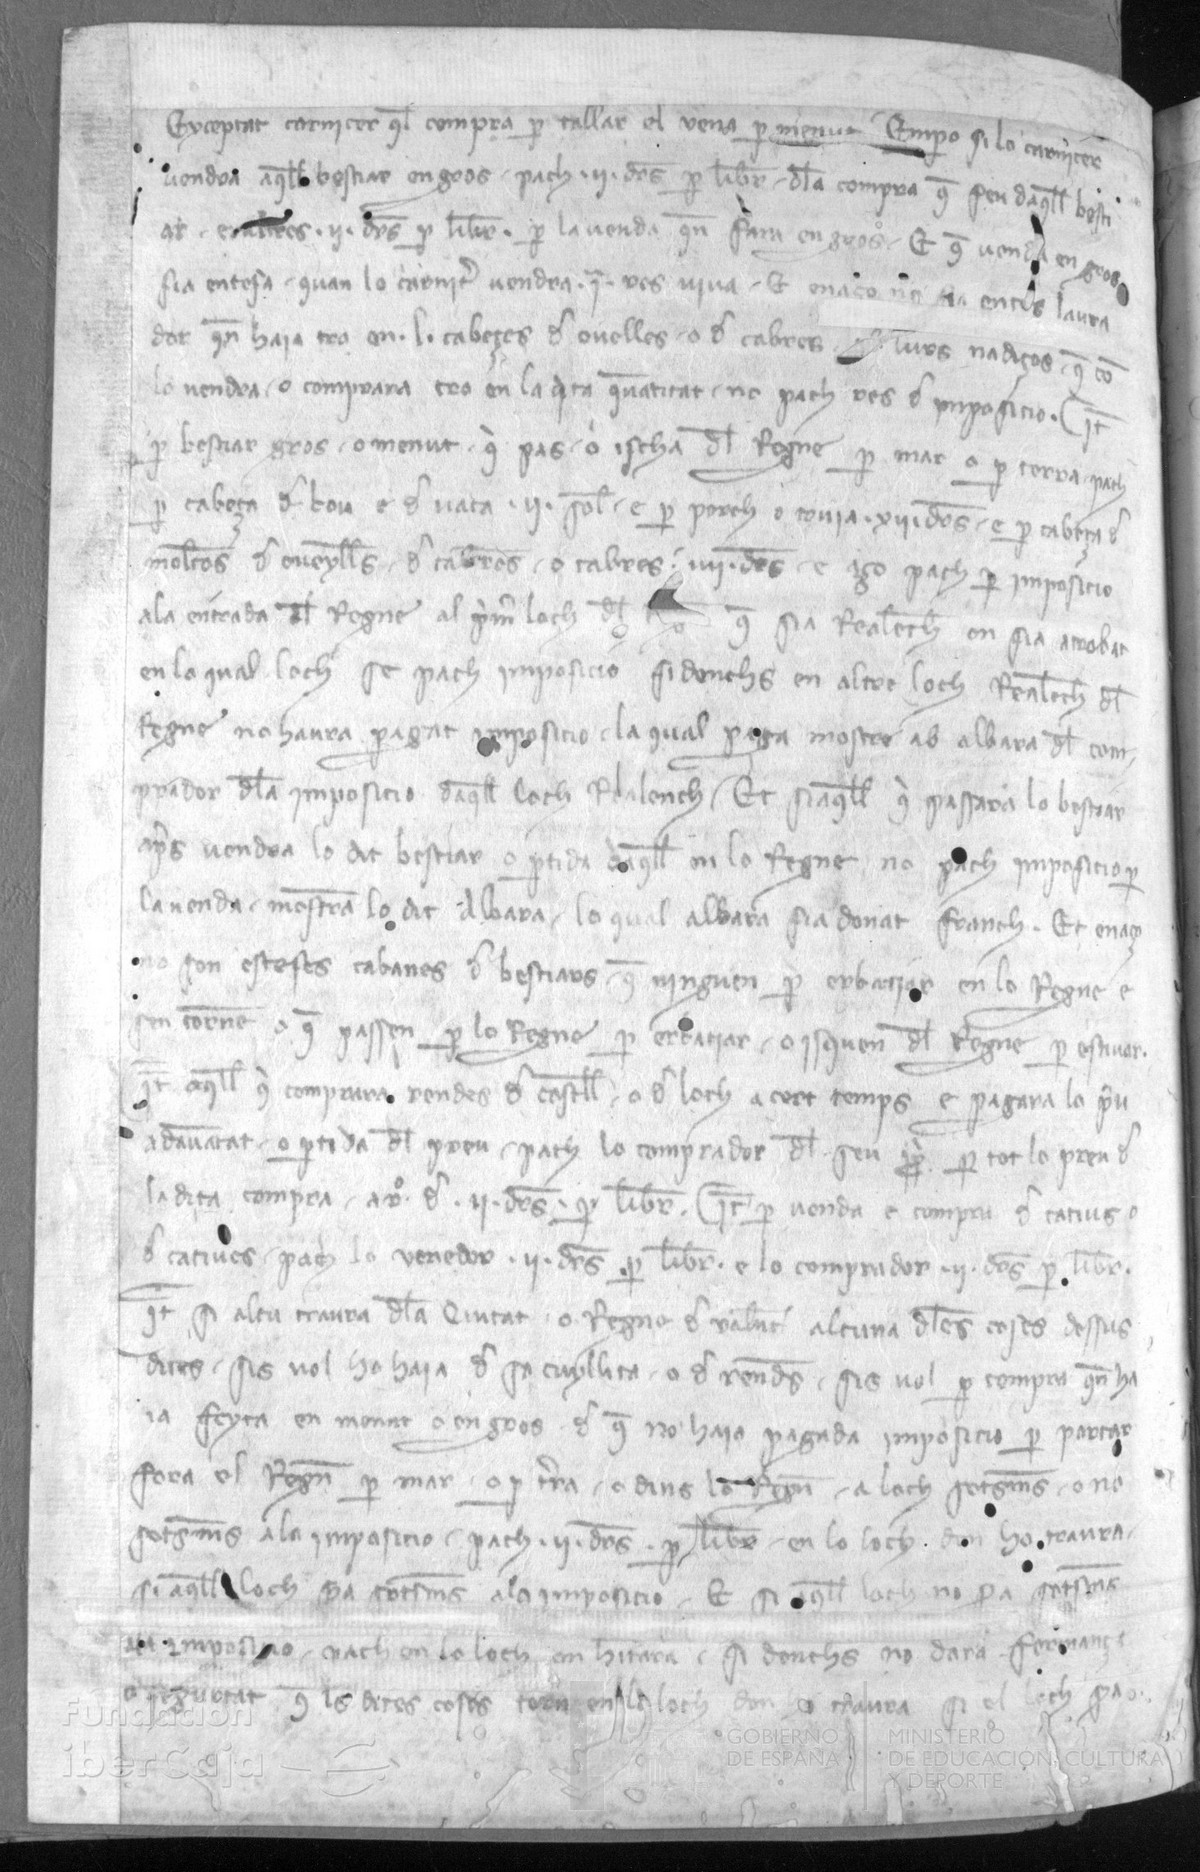 Exceptat carnicer q̄l compra p̱ tallar el vena p̱ menut Emꝑo si lo carnicer
vendra aq̄ll bestiar en gros pach .ii. drs̄ p̱ libr̄ dl̄a compra q̄ feu daq̄ll besti
ar e altres .ii. drs̄ p̱ libr̄. p̱ la venda qn̄ fara en gros. E q̄ venda en gros
sia entesa quan lo carnic̄ vendra .i. res viva E en aço no sia entes laura
dor qn̄ haia tro en .l. cabeçes d̄ ovelles o d̄ cabres lurs nadiços q̄ co
lo vendra o comprara tro en la dita q̄ntitat no pach res d̄ imposicio. Itē
p̱ bestiar gros o menut q̄ pas o ischa dl̄ Regne p̱ mar o p̱ terra pach
p̱ cabeça d̄ bou e d̄ vaca .ii. sol̄ e p̱ porch o truia .xii. drs̄ e p̱ cabeça d̄
moltōs d̄ oveylls̄ d̄ cabrōs o cabres .iiii. drs̄ e aço pach p̱ imposicio
a la entrada dl̄ Regne al p̱m̄ loch dl̄ q̄ sia Realēch en sia atrobat
en lo qual loch se pach imposicio si donchs en altre loch Realēch dl̄
Regne no haura pagat imposicio la qual paga mostre ab albara dl̄ com
prador dl̄a imposicio daq̄ll loch Realench Et si aq̄ll q̄ passara lo bestiar
ap̄s vendra lo dit bestiar o p̱tida daq̄ll en lo Regne no pach imposicio p̱
la venda mostrā lo dit albara lo qual albara sia donat franch. Et en aço
no son esteses cabanes d̄ bestiars q̄ vinguen p̱ erbatjar en lo Regne e
sen tornē o q̄ passen p̱ lo Regne p̱ erbatjar o isquen dl̄ Regne p̱ estivar.
Itē aq̄ll q̄ comprara rendes d̄ castl̄l o d̄ loch a cert temps e pagara lo p̄u
adavātat o p̱tida dl̄ preu pach lo comprador dl̄ seu pp̱ p̱ tot lo preu d̄
la dita compra a rº d̄ .ii. drs̄ . p̱ libr̄. Itē p̱ venda e compra d̄ catius o
d̄ catives pach lo venedor .ii. drs̄ p̱ libr̄. e lo comprador .ii. drs̄ p̱ libr̄.
Itē si alcu traura dl̄a Ciutat o Regne d̄ valēt̄ alcuna dl̄es coses dessus
dites sis vol ho haia d̄ sa cuyllita o d̄ rends̄ sis vol p̱ compra qn̄ ha
ia feyta en menut o en gros d̄ q̄ no haia pagada imposicio p̱ portar
fora el Regn̄ p̱ mar o p̱ trr̄a o dins lo Regn̄ a loch sotsmes o no
sotsmes a la imposicio pach .ii. drs̄ . p̱ libr̄ en lo loch don ho traura
si aq̄ll loch s̱a sotsmes a la imposicio E si aq̄ll loch no s̱a sotsmes
a la imposicio pach en lo loch on hirara si donchs no dara fermança
o segurtat q̄ les dites coses torn en lo loch don ho traura si el loch s̱a o
Fundación
iberCaja
GOBIERNO
DE ESPAÑA
MINISTERIO
DE EDUCACIÓN, CULTURA
Y DEPORTE